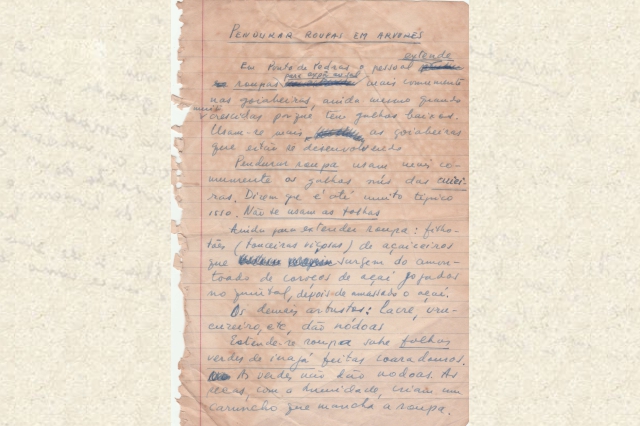 PENDURAR ROUPAS EM ARVORES
Em Ponta de Pedras o pessoal estende
roupas para enxugar mais comumente
nas goiabeiras, ainda mesmo quando
muito
crescidas porque têm galhos baixos.
Usam-se mais as goiabeiras
que estão se desenvolvendo
Pendurar roupa usam mais co-
mumente os galhos nús das cuiei-
ras. Dizem que é até muito típico
isso. Não se usam as folhas
Ainda para estender roupa: filho-
tões (touceiras viçosas) de açaizeiros
que surgem do amon-
toado de caroços de açaí jogados
no quintal, depois de amassado o açaí.
Os demais arbustos: lacre, uru-
cureiro, etc, dão nódoas
Estende-se roupa sobre folhas
verdes de inajá feitas coaradouros.
As verdes não dão nodoas. As
secas, com a humidade, criam um
caruncho que mancha a roupa.